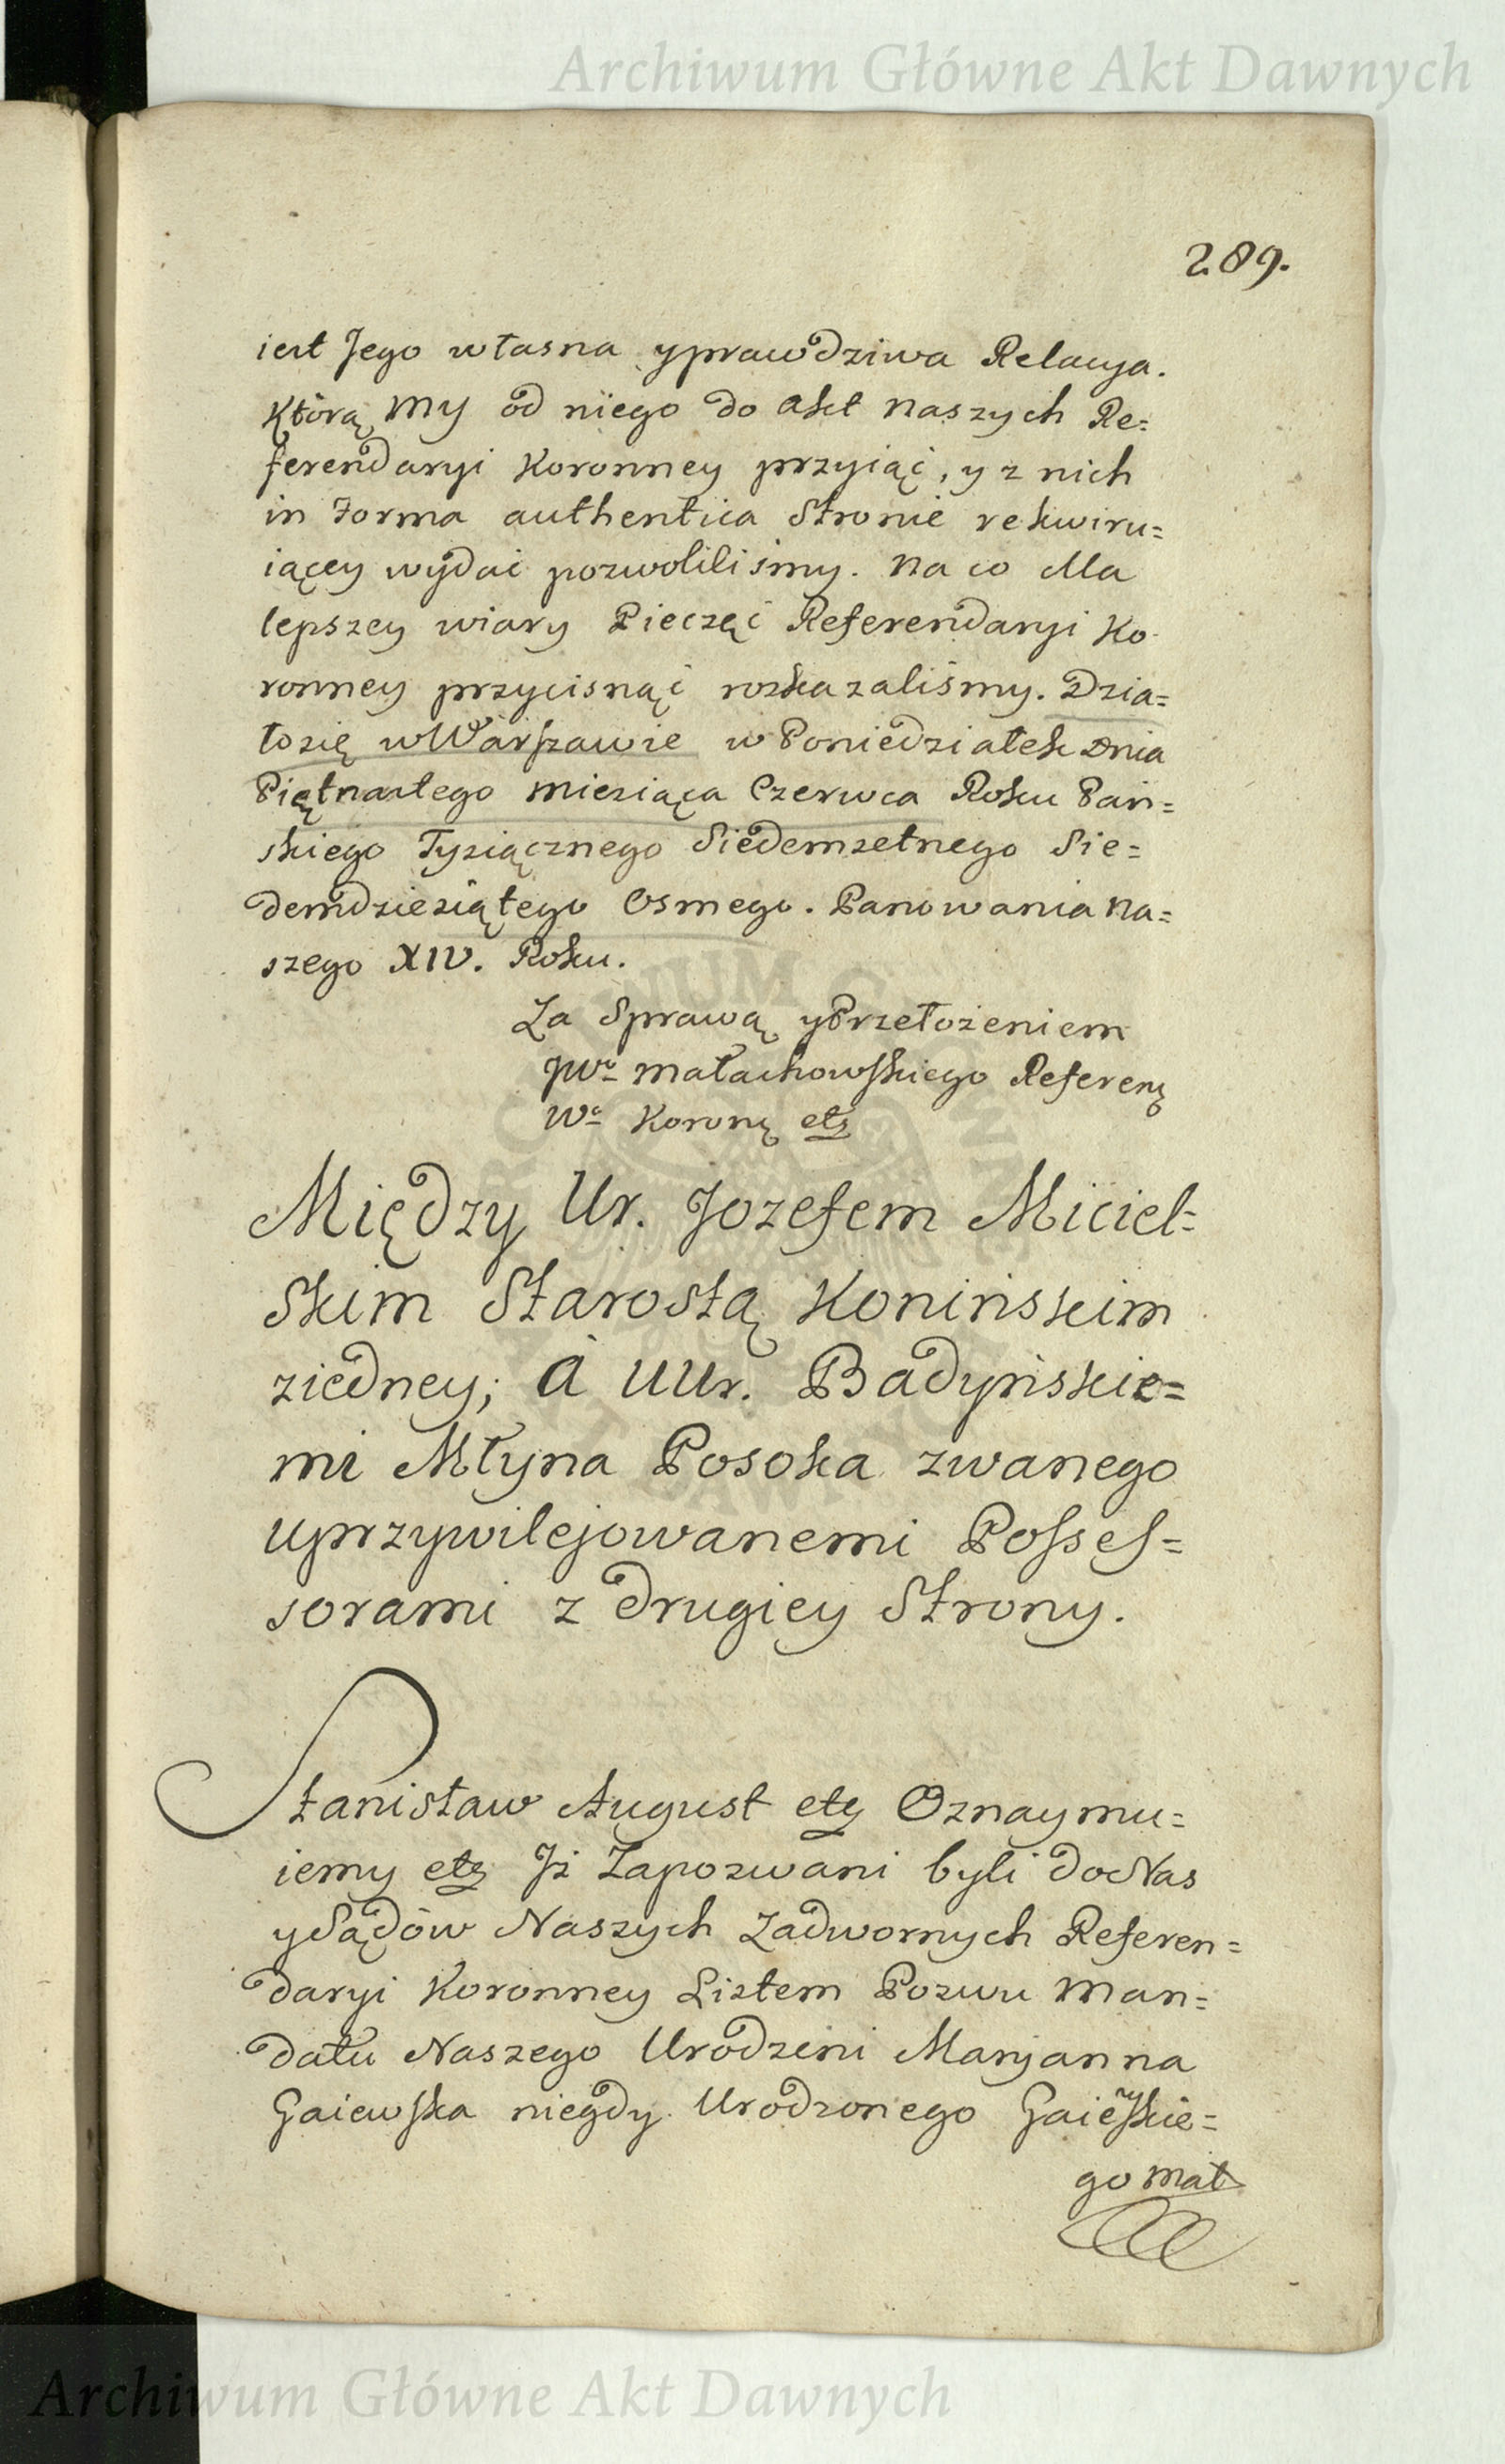 Archiwum Główne Akt Dawnych
289.
iest Jego własna yprawdziwa Relacya.
Którą my od niego do akt naszych Re=
ferendaryi Koronney przyiąć, y z nich
in Forma authentica Stronie rekwiru=
iącey wydać pozwoliliśmy. na co dla
lepszey wiary Pieczęć Referendaryi Ko-
ronney przycisnąć rozkazaliśmy. Dzia=
łosię wWarszawie w Poniedziałek Dnia
Piętnastego miesiąca Czerwca Roku Pań=
skiego Tysiącznego Siedemsetnego Sie=
demdziesiątego Osmego. Panowania na=
szego XIV. Roku.
Za Sprawą yPrzełożeniem
JWo małachowskiego Referen
Wo Koron etc
Między Ur. Jozefem Miciel=
Skim Starostą Konińskim
ziedney; a UUr. Badyńskie=
mi Młyna Posoka zwanego
uprzywilejowanemi Posses=
sorami z drugiey Strony.
Stanisław August etc Oznaymu=
iemy etc Iż Zapozwani byli doNas
ySądów Naszych Zadwornych Referen=
daryi Koronney Listem Pozwu Man=
datu Naszego Urodzeni Maryanna
Gaiewska niegdy Urodzonego Gaiewskie=
go mał
Archiwum Główne Akt Dawnych